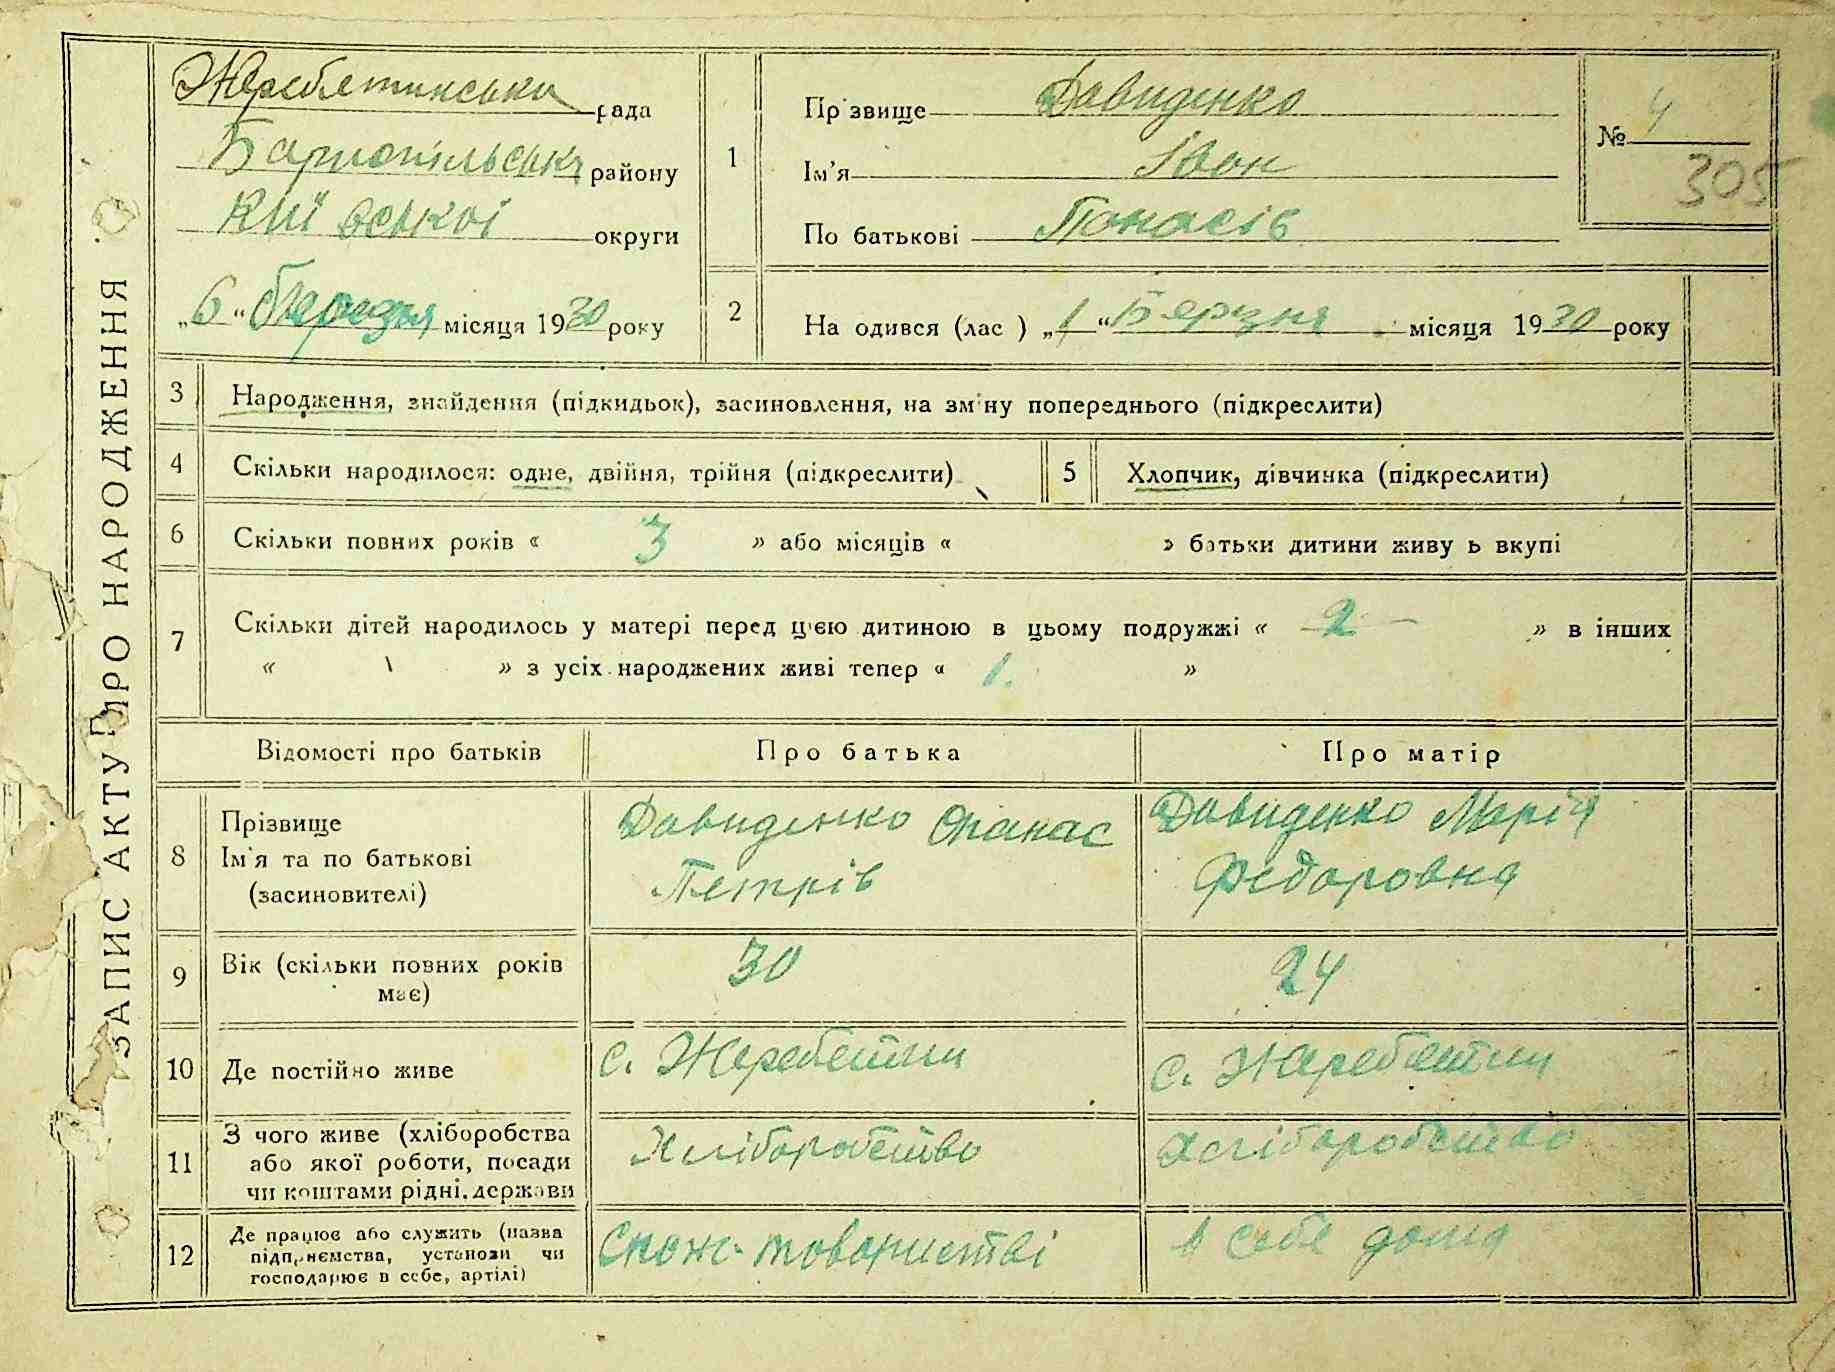 ЗАПИС АКТУ ПРО НАРОДЖЕННЯ
Жеребятинська рада
Бариспільськ району
Київської округи
„6“ березня місяця 1930 року
1
Прізвище Давиденко
Ім'я Іван
По батькові Панасів
№ 4
305
2
На одився (лас ) „1“ Березня місяця 1930 року
3 Народження, знайдення (підкидьок), засиновлення, на зміну попереднього (підкреслити)
4 Скільки народилося: одне, двійня, трійня (підкреслити)
5 Хлопчик, дівчинка (підкреслити)
6 Скільки повних років « 3 » або місяців « » батьки дитини живу ь вкупі
7 Скільки дітей народилось у матері перед цією дитиною в цьому подружжі « 2 » в інших
« \ » з усіх народжених живі тепер « 1. »
Відомості про батьків Про батька Про матір
8 Прізвище
Ім'я та по батькові
(засиновителі)
Давиденко Опанас
Петрів
Давиденко Марія
Федоровна
9 Вік (скільки повних років
має)
30
24
10 Де постійно живе
с. Жеребетин
с. Жеребятин
11 З чого живе (хліборобства
або якої роботи, посади
чи коштами рідні, держави
Хліборобство
Хліборобство
12 Де працює або служить (назва
підприємства, установи чи
господарює в себе, артілі)
Спож. товаристві
в себе дома